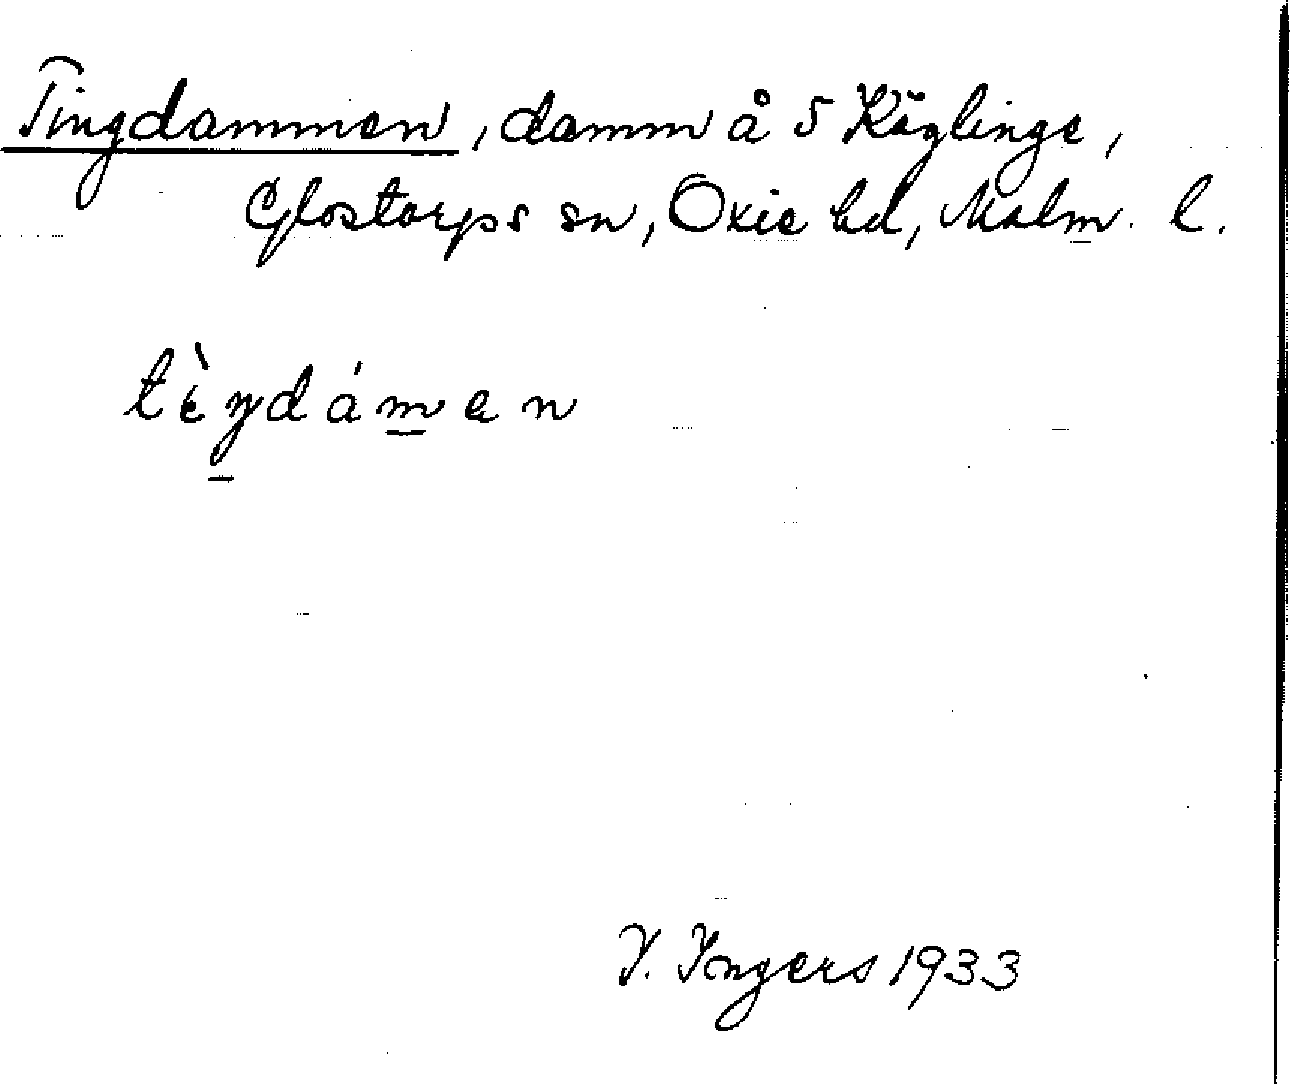 Tingdammen, damm å 5 Käglinge,
Glostorps sn, Oxie hd, Malm. l.
tèŋdámen
I. Ingers 1933